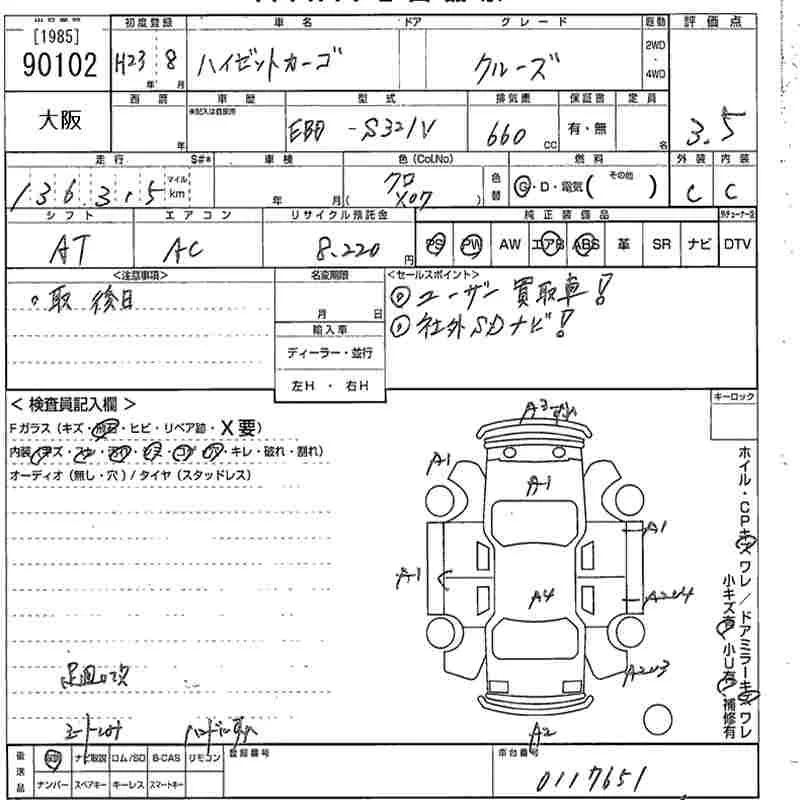 [1985]
90102
初度登録
車名
ドア
グレード
駆動
評価点
H23 8
年 月
ハイゼットカーゴ
クルーズ
2WD
・
4WD
3.5
大阪
西暦
年
車歴
未記入は自家用
型式
EBD -S321V
排気量
660 cc
保証書
有・無
定員
名
外装 内装
C C
走行
S#*
マイル
km
136315
車検
年 月
色(Col.No)
クロ
( X07 )
色替
燃料
G・D・電気( その他 )
シフト
AT
エアコン
AC
リサイクル預託金
8.220 円
純正装備品
PS PW AW エアB ABS 革 SR ナビ DTV
<注意事項>
○取 後日
名変期限
月 日
輸入車
ディーラー・並行
左H ・ 右H
<セールスポイント>
ユーザー買取車!
社外SDナビ!
キーロック
<検査員記入欄>
Fガラス(キズ・ ・ヒビ・リペア跡・X要)
内装(キズ・ ・ ・ ・ ・ ・キレ・破れ・割れ)
オーディオ(無し・穴)/タイヤ(スタッドレス)
A1
A1
A1
A1
A4
A2
ホイル・CPキズ ワレ/ドアミラーキズ ワレ
小キズ有 小U有 補修有
ナビ取説 ロム/SD B-CAS リモコン
ナンバー スペアキー キーレス スマートキー
登録番号
車台番号
0117651